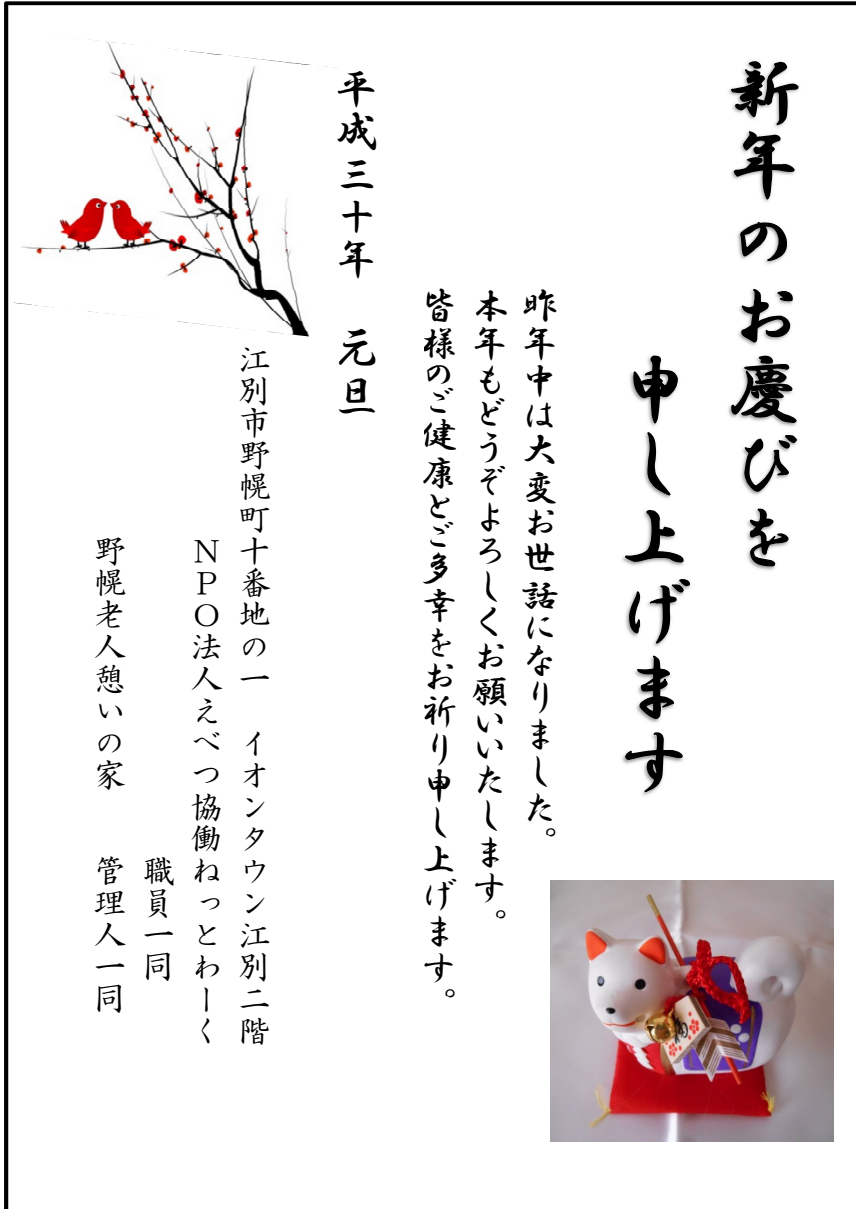 新年のお慶びを
申し上げます
昨年中は大変お世話になりました。
本年もどうぞよろしくお願いいたします。
皆様のご健康とご多幸をお祈り申し上げます。
平成三十年　元旦
江別市野幌町十番地の一　イオンタウン江別二階
ＮＰＯ法人えべつ協働ねっとわーく
職員一同
野幌老人憩いの家　管理人一同